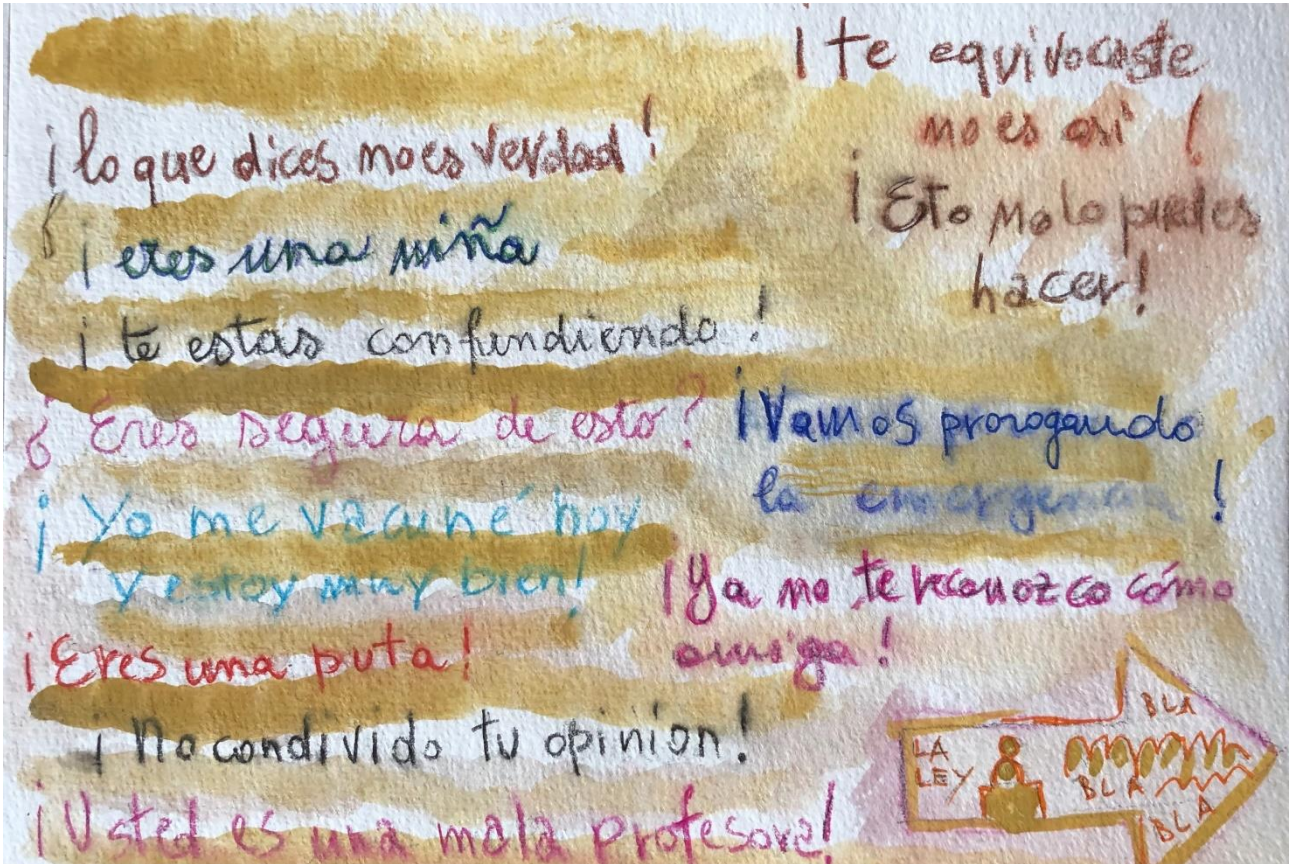 ¡lo que dices no es verdad!
¡eres una niña
¡te estas confundiendo!
¿Eres segura de esto?
¡Yo me vacuné hoy
y estoy muy bien!
¡Eres una puta!
¡No condivido tu opinion!
¡Usted es una mala profesora!
¡te equivocaste
no es asi!
¡Esto no lo puedes
hacer!
¡Vamos prorogando
la emergencia!
¡Ya no te reconozco cómo
amiga!
LA
LEY
BLA
BLA
BLA